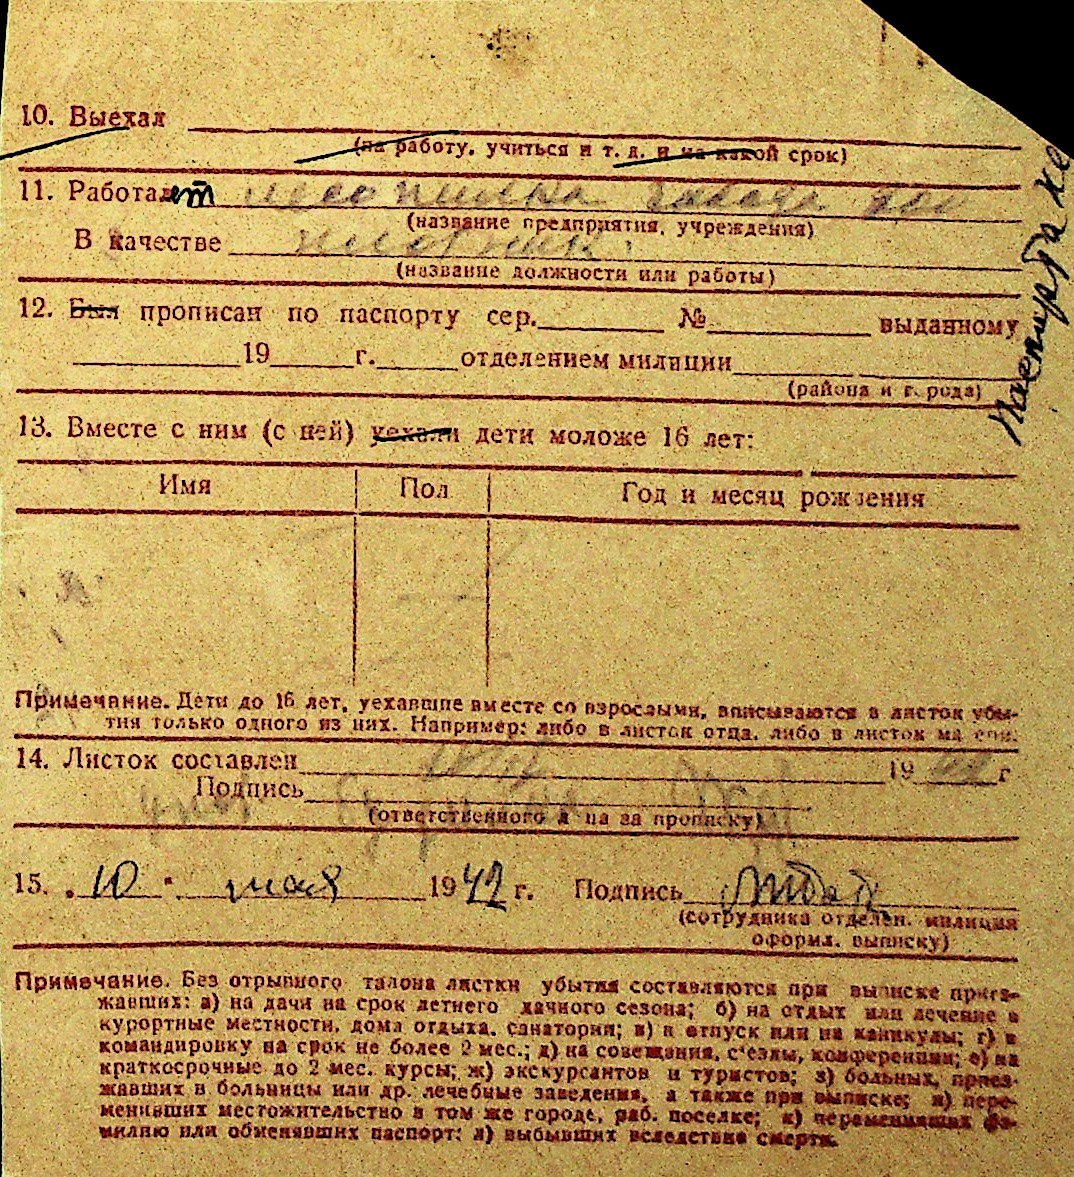 10. Выехал
(на работу, учиться и т. д. и на какой срок)
11. Работает лесопилка завода
(название предприятия, учреждения)
В качестве
(название должности или работы)
12. Был прописан по паспорту сер. № выданному
19 г. отделением милиции
(района и города)
13. Вместе с ним (с ней) уехали дети моложе 16 лет:
Имя Пол Год и месяц рождения
Примечание. Дети до 16 лет, уехавшие вместе со взрослыми, вписываются в листок убы-
тия только одного из них. Например: либо в листок отца, либо в листок матери.
14. Листок составлен 1942 г
Подпись
(ответственного лица за прописку)
15. „10" мая 1942 г. Подпись
(сотрудника отделен. милиции
оформл. выписку)
Примечание. Без отрывного талона листки убытия составляются при выписке приез-
жавших: а) на дачи на срок летнего дачного сезона; б) на отдых или лечение в
курортные местности, дома отдыха, санатории; в) в отпуск или на каникулы; г) в
командировку на срок не более 2 мес.; д) на совещания, с'езды, конференции; е) на
краткосрочные до 2 мес. курсы; ж) экскурсантов и туристов; з) больных, приез-
жавших в больницы или др. лечебные заведения, а также при выписке; и) пере-
менивших местожительство в том же городе, раб. поселке; к) переменивших фа-
милию или обменявших паспорт; л) выбывших вследствие смерти.